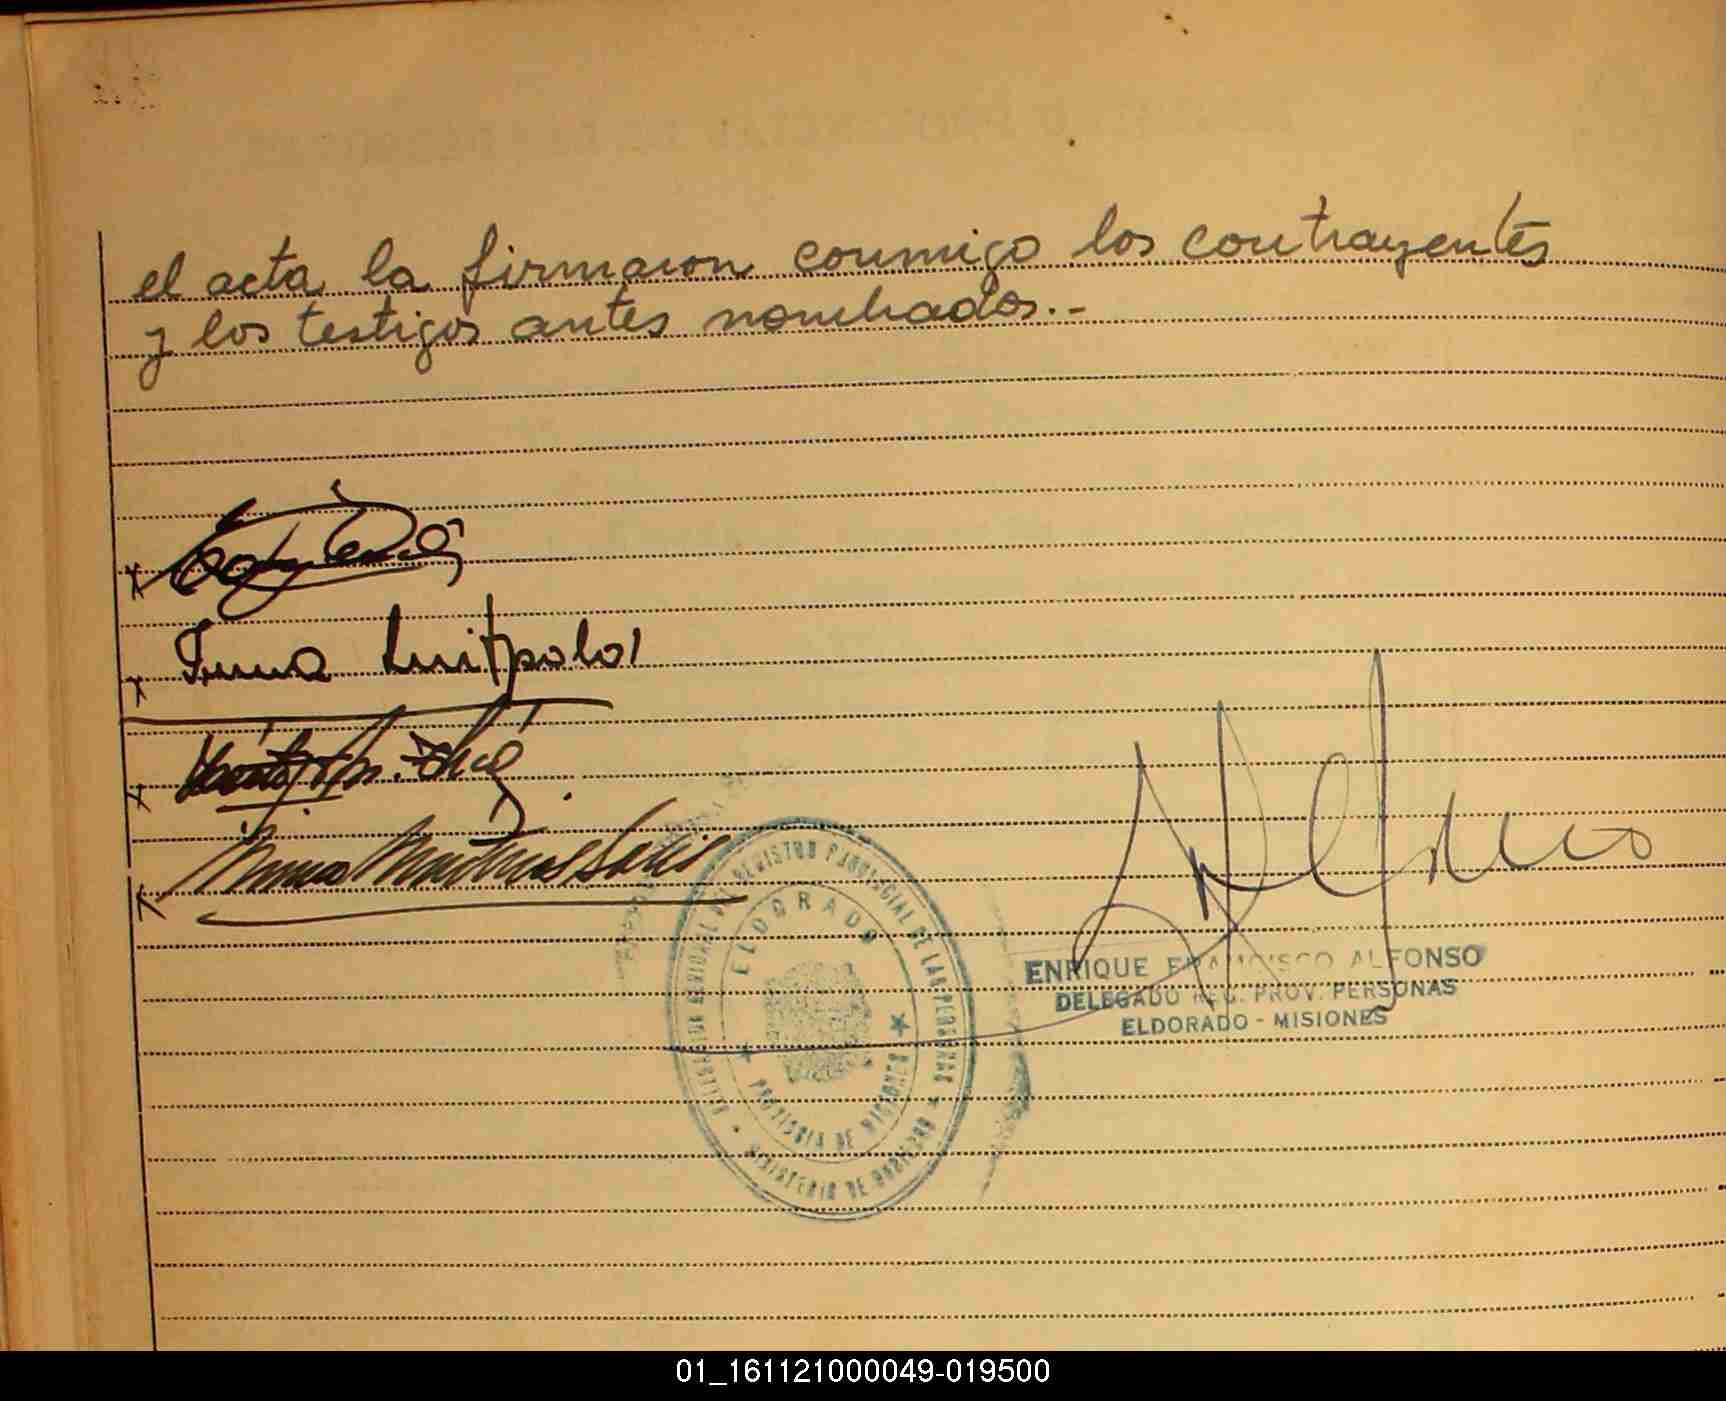 el acta la firmaron conmigo los contrayentes
y los testigos antes nombrados.-
Irma Luitpold
ELDORADO
PROVINCIA DE MISIONES
REGISTRO PROVINCIAL DE LAS PERSONAS
MINISTERIO DE GOBIERNO
ENRIQUE FRANCISCO ALFONSO
DELEGADO REG. PROV. PERSONAS
ELDORADO - MISIONES
01_161121000049-019500